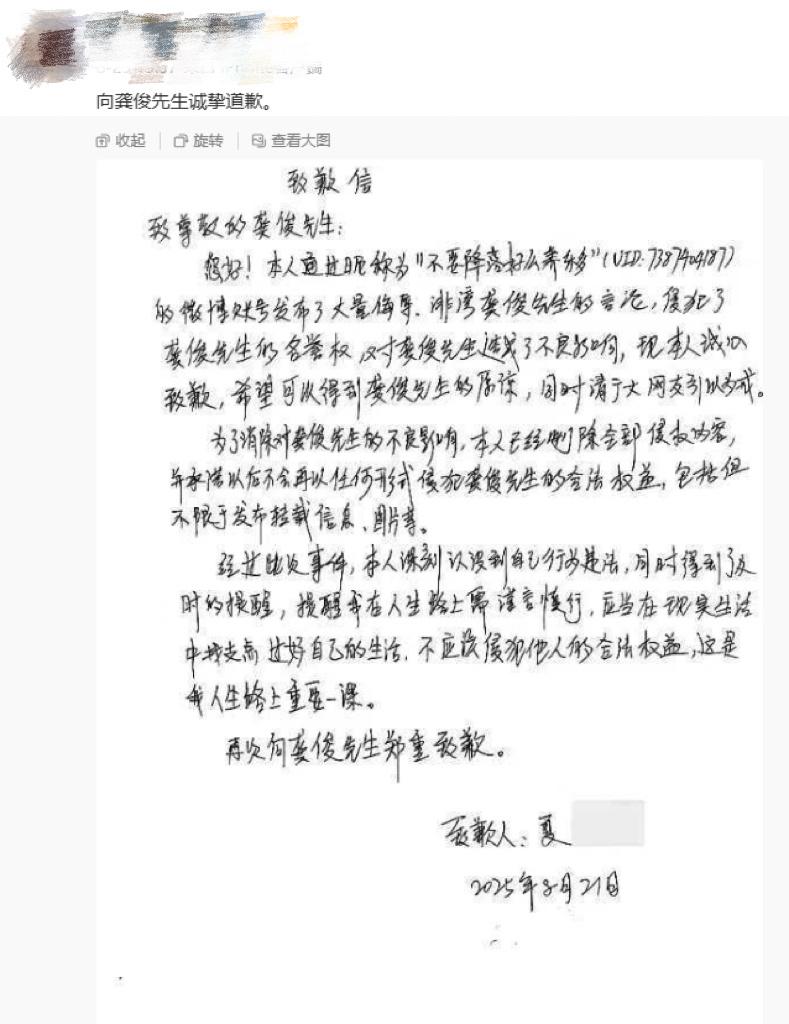 向龚俊先生诚挚道歉。
收起 旋转 查看大图
致歉信
致尊敬的龚俊先生：
您好！本人通过昵称为“不要降落”(UID:7387404187)
的微博账号发布了大量侮辱、诽谤龚俊先生的言论，侵犯了
龚俊先生的名誉权，对龚俊先生造成了不良影响，现本人诚心
致歉，希望可以得到龚俊先生的原谅，同时请广大网友引以为戒。
为了消除对龚俊先生的不良影响，本人已经删除全部侵权内容，
并承诺以后不会再以任何形式侵犯龚俊先生的合法权益，包括但
不限于发布挂载信息、图片等。
经过此次事件，本人深刻认识到自己行为违法，同时得到了及
时的提醒，提醒我在人生路上需谨言慎行，应当在现实生活
中找支点过好自己的生活，不应该侵犯他人的合法权益，这是
我人生路上重要一课。
再次向龚俊先生郑重致歉。
致歉人：夏
2025年8月21日